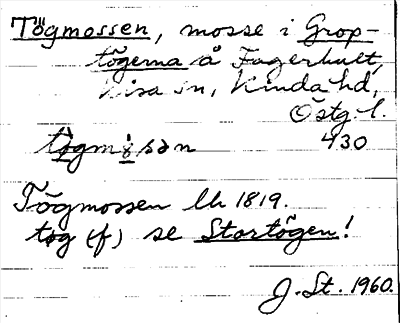 Tögmossen, mosse i Grop-
tögerna å Fagerhult,
Kisa sn, Kinda hd,
Östg. l.
430
Tögmossen lh 1819.
tøg (f) se Stortögen!
J. St. 1960.